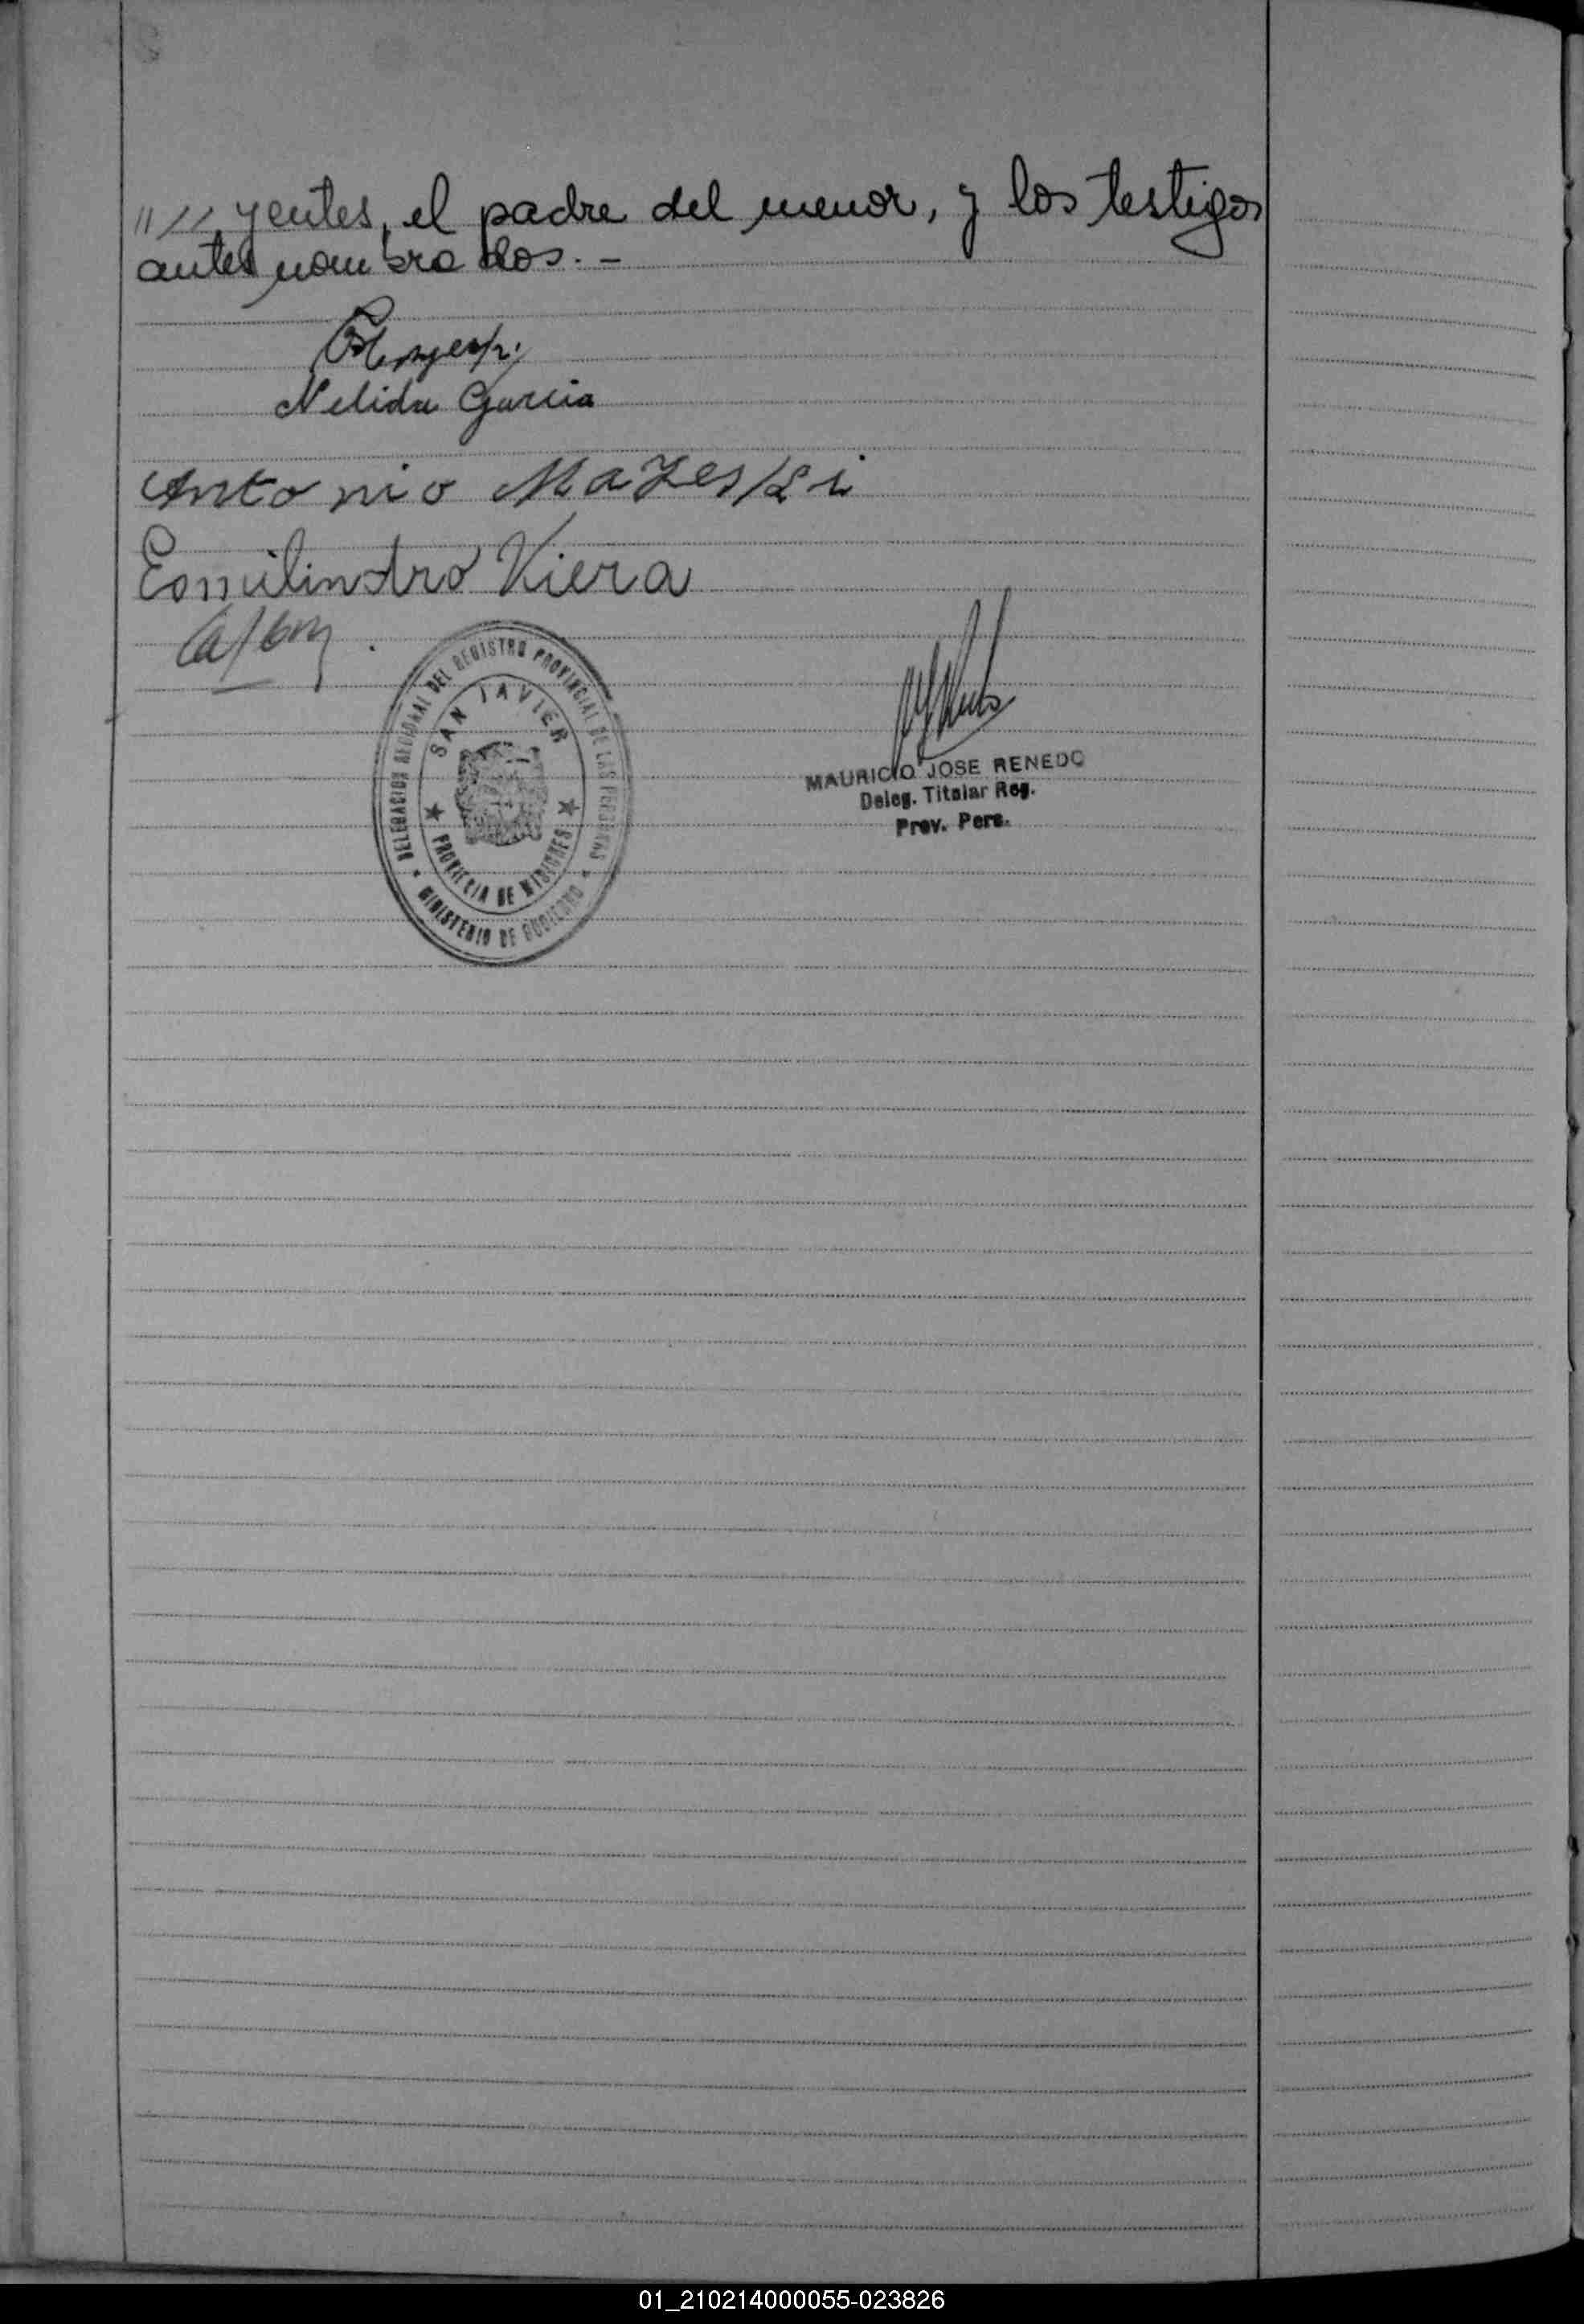 ////yentes, el padre del menor, y los testigos
antes nombrados.-
Nelida Garcia
Antonio
Esmilindro Viera
DELEGACION REGIONAL DEL REGISTRO PROVINCIAL DE LAS PERSONAS
SAN JAVIER
PROVINCIA DE MISIONES
MINISTERIO DE GOBIERNO
MAURICIO JOSE RENEDO
Deleg. Titular Reg.
Prov. Pers.
01_210214000055-023826